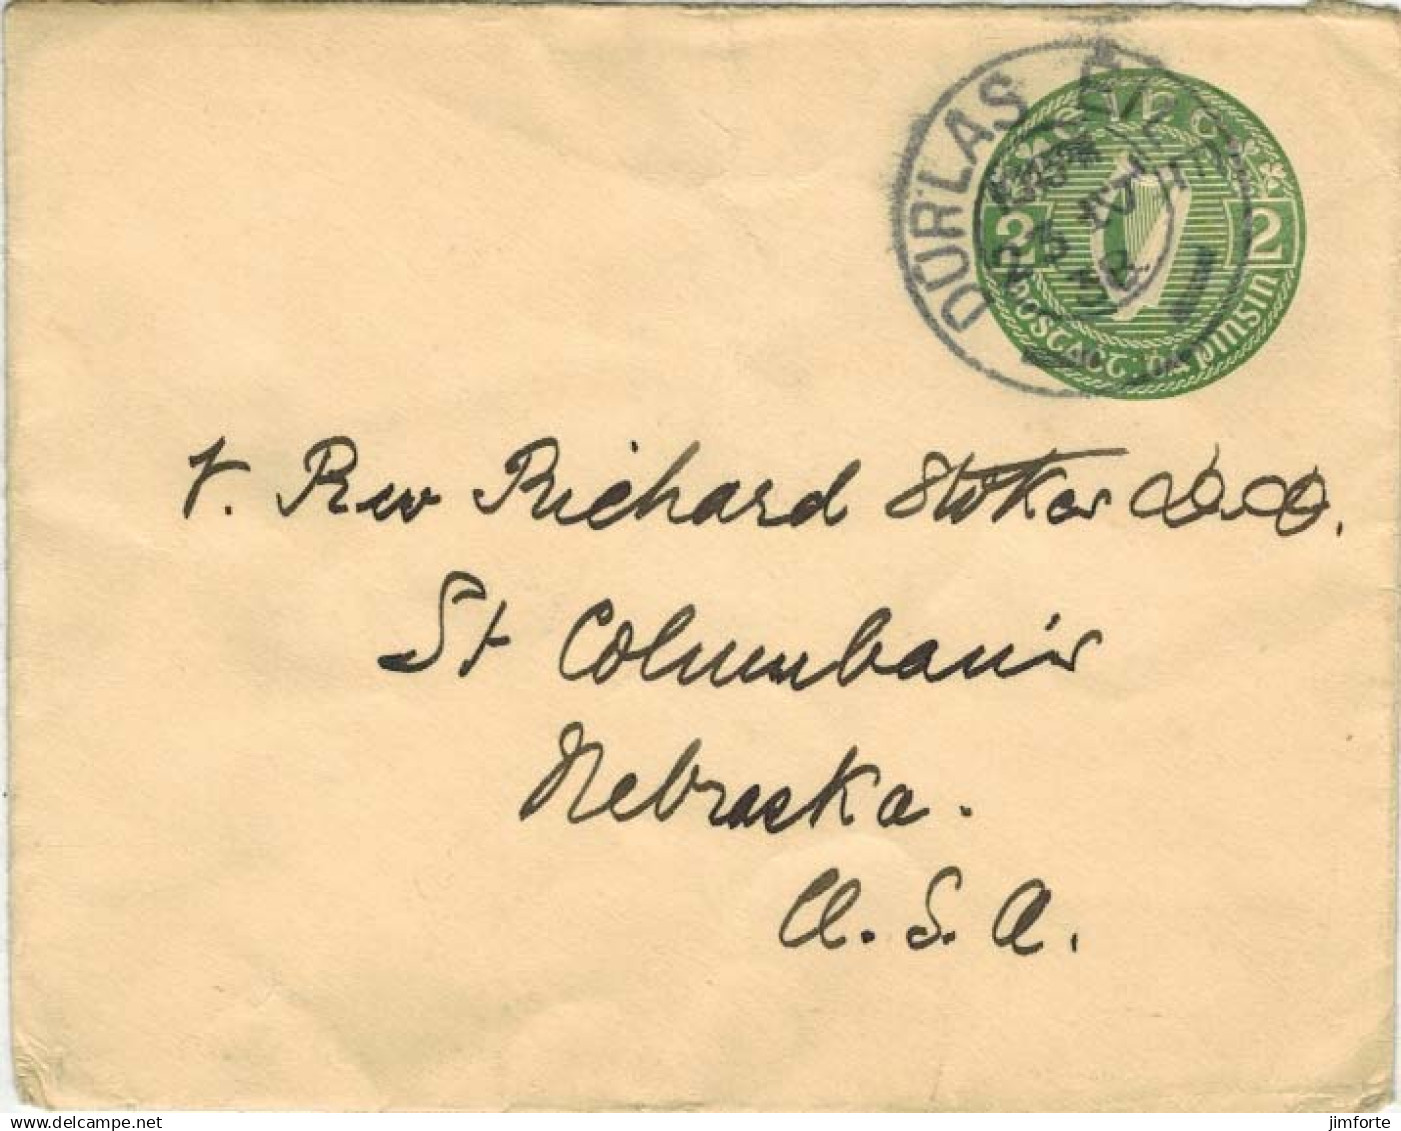 DURLAS ÉILE
23 IV 38
2 2
postaċt: dá pinsin
V. Rev Richard Stokes D.D.
St Columban's
Nebraska.
U.S.A.
www.delcampe.net
jimforte